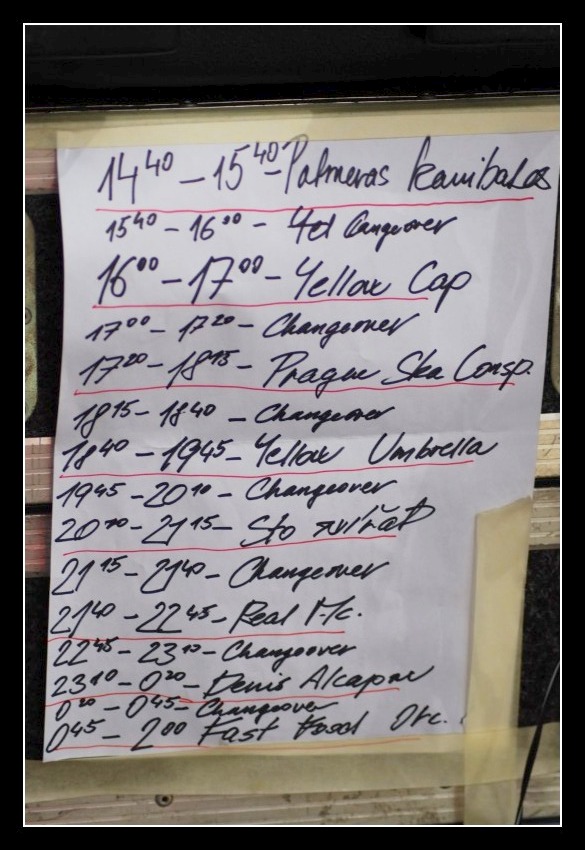 14⁴⁰ – 15⁴⁰ – Palmeras Kanibales
15⁴⁰ – 16⁰⁰ – Yel Cangeover
16⁰⁰ – 17⁰⁰ – Yellow Cap
17⁰⁰ – 17²⁰ – Changeover
17²⁰ – 18¹⁵ – Prague Ska Consp.
18¹⁵ – 18⁴⁰ – Changeover
18⁴⁰ – 19⁴⁵ – Yellow Umbrella
19⁴⁵ – 20¹⁰ – Changeover
20¹⁰ – 21¹⁵ – Sto zvířat
21¹⁵ – 21⁴⁰ – Changeover
21⁴⁰ – 22⁴⁵ – Real Mc.
22⁴⁵ – 23¹⁰ – Changeover
23¹⁰ – 0²⁰ – Denis Alcapone
0²⁰ – 0⁴⁵ – Changeover
0⁴⁵ – 2⁰⁰ Fast Food Orc.